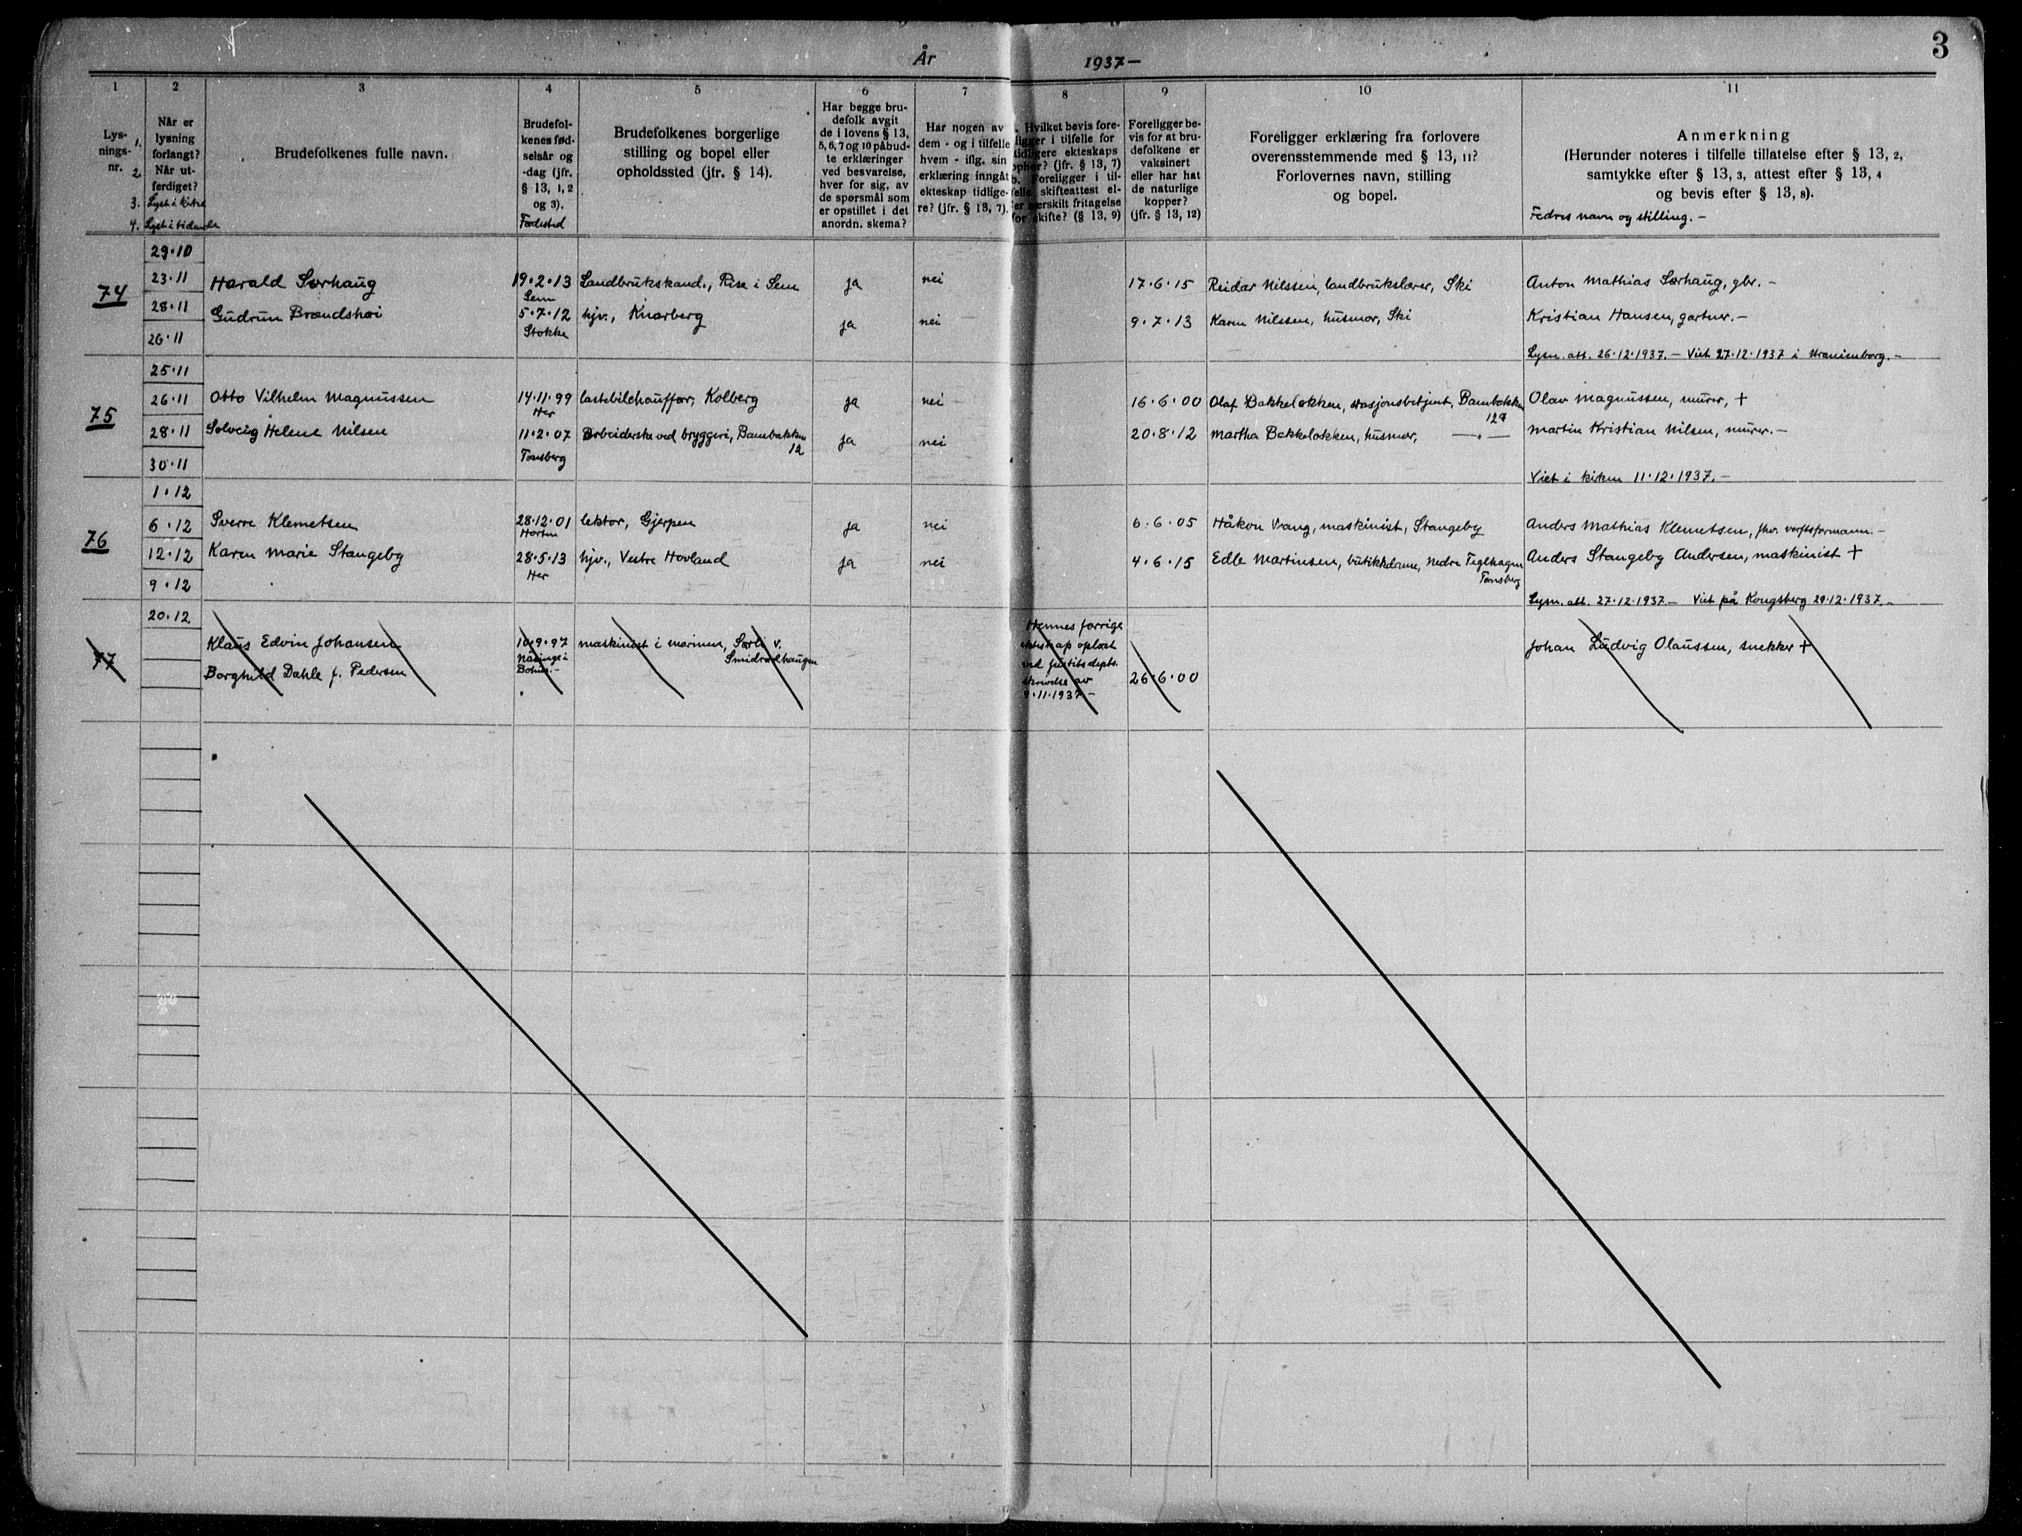 3
År 1937-
1 2 3 4 5 6 7 8 9 10 11
Lysningsnr.
1.
2.
3.
4.
Når er lysning forlangt? Når utferdiget?
Lyst i kirke
Lyst i tidende
Brudefolkenes fulle navn.
Brudefolkenes fødselsår og -dag (jfr. § 13, 1, 2 og 3).
Fødested
Brudefolkenes borgerlige stilling og bopel eller opholdssted (jfr. § 14).
Har begge brudefolk avgit de i lovens § 13, 5, 6, 7 og 10 påbudte erklæringer ved besvarelse, hver for sig, av de spørsmål som er opstillet i det anordn. skema?
Har nogen av dem - og i tilfelle hvem - iflg. sin erklæring inngått ekteskap tidligere? (jfr. § 13, 7).
Hvilket bevis foreligger i tilfelle for tidligere ekteskaps ophør? (jfr. § 13, 7)
b. Foreligger i tilfelle skifteattest eller særskilt fritagelse for skifte? (§ 13, 9)
Foreligger bevis for at brudefolkene er vaksinert eller har hat de naturlige kopper? (jfr. § 13, 12)
Foreligger erklæring fra forlovere overensstemmende med § 13, 11? Forlovernes navn, stilling og bopel.
Anmerkning
(Herunder noteres i tilfelle tillatelse efter § 13, 2, samtykke efter § 13, 3, attest efter § 13, 4 og bevis efter § 13, 8).
Fedres navn og stilling.-
74
29.10
23.11
28.11
26.11
Harald Sørhaug 19.2.13 Sem Landbrukskand., Rise i Sem ja nei 17.6.15 Reidar Nilssen, landbrukslærer, Ski Anton Mathias Sørhaug, gbr.-
Gudrun Brændshøi 5.7.12 Stokke hjv., Knarberg ja nei 9.7.13 Karen Nilssen, husmor, Ski Kristian Hansen, gartner.-
Lysn. att. 26.12.1937.- Viet 27.12.1937 i Uranienborg.-
75
25.11
26.11
28.11
30.11
Otto Vilhelm Magnussen 14.11.99 Her lastebilchauffør, Kolberg ja nei 16.6.00 Olaf Bakkeløkken, stasjonsbetjent, Bambakken 12a Olav Magnussen, murer, +
Solveig Helene Nilsen 11.2.07 Tønsberg Arbeiderske ved bryggeri, Bambakken 12 ja nei 20.8.12 Martha Bakkeløkken, husmor, —"— Martin Kristian Nilsen, murer.-
Viet i kirken 11.12.1937.-
76
1.12
6.12
12.12
9.12
Sverre Klemetsen 28.12.01 Horten lektor, Gjerpen ja nei 6.6.05 Håkon Vrang, maskinist, Stangeby Anders Mathias Klemetsen, fhv. verftsformann.-
Karen Marie Stangeby 28.5.13 Her hjv., Vestre Hovland ja nei 4.6.15 Edle Martinsen, butikkdame, Nedre Teglhagen Tønsberg Anders Stangeby Andersen, maskinist +
Lysn. att. 27.12.1937- Viet på Kongsberg 29.12.1937.-
77
20.12
Klaus Edvin Johansen 10.9.97 maskinist i marinen, Sørli v. Smidsrødhaugen Johan Ludvig Olaussen, snekker +
Borghild Dahle f. Pedersen 26.6.00
Hennes forrige
ekteskap opløst
ved justitsdepts.
skrivelse av
9.11.1937-